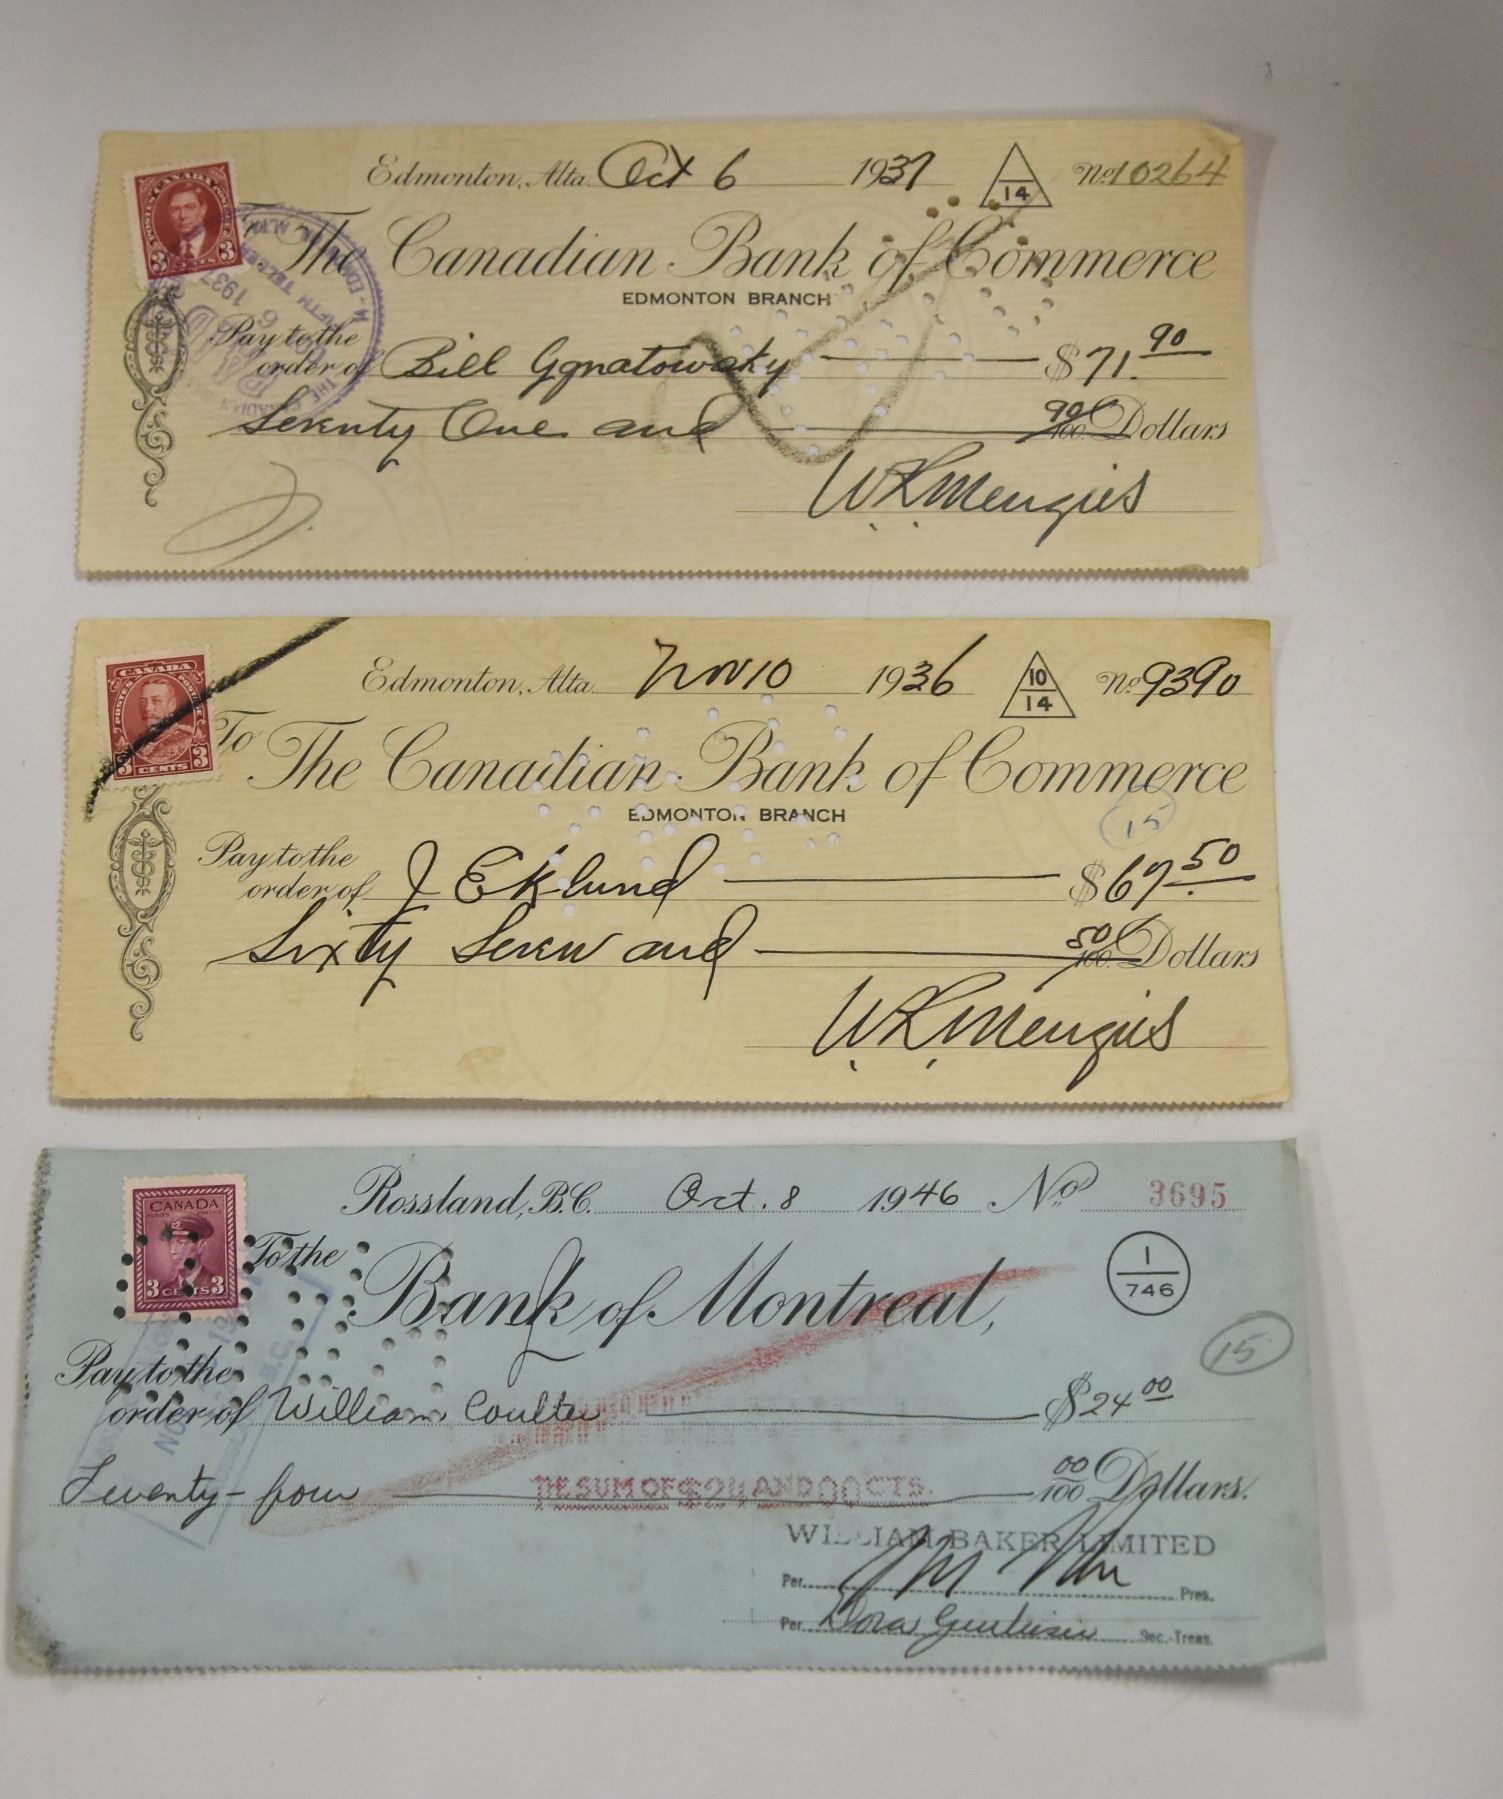 Edmonton, Alta. Oct 6 1937 14 No. 10264
The Canadian Bank of Commerce
EDMONTON BRANCH
Pay to the
order of Bill Ggnatowsky $71.90
Seventy One and 90/100 Dollars
W.L. Menzies
POSTES CANADA POSTAGE
3 CENTS 3
1937
Edmonton, Alta. Nov 10 1936 10/14 No 9390
To The Canadian Bank of Commerce
EDMONTON BRANCH
15
Pay to the
order of J Eklund $67.50
Sixty Seven and 50/100 Dollars
W.L. Menzies
CANADA
POSTES POSTAGE
3 CENTS 3
Rossland, B.C. Oct. 8 1946 No 3695
To the
Bank of Montreal,
1/746
15
Pay to the
order of William Coulter $24.00
Twenty-four 00/100 Dollars.
THE SUM OF $24 AND 00 CTS.
WILLIAM BAKER LIMITED
Per Pres.
Per Dora Sec.-Treas.
CANADA
3 CENTS 3